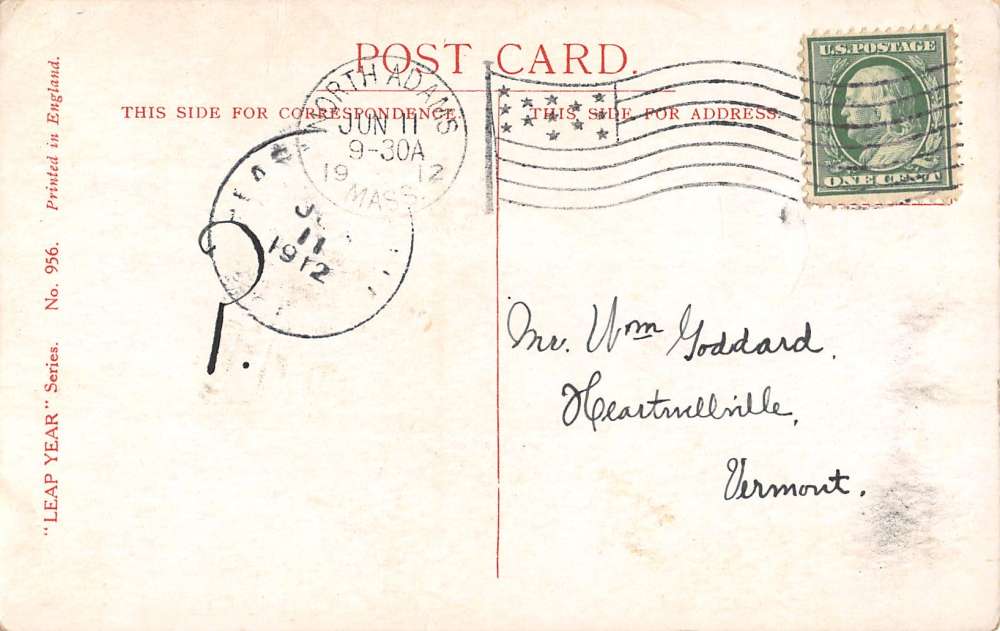 POST CARD.
THIS SIDE FOR CORRESPONDENCE.
THIS SIDE FOR ADDRESS.
NORTH ADAMS
JUN 11
9-30A
19 12
MASS.
U.S. POSTAGE
ONE CENT
11
1912
?
Mr. Wm Goddard.
Heartwellville,
Vermont.
"LEAP YEAR" Series. No. 956. Printed in England.